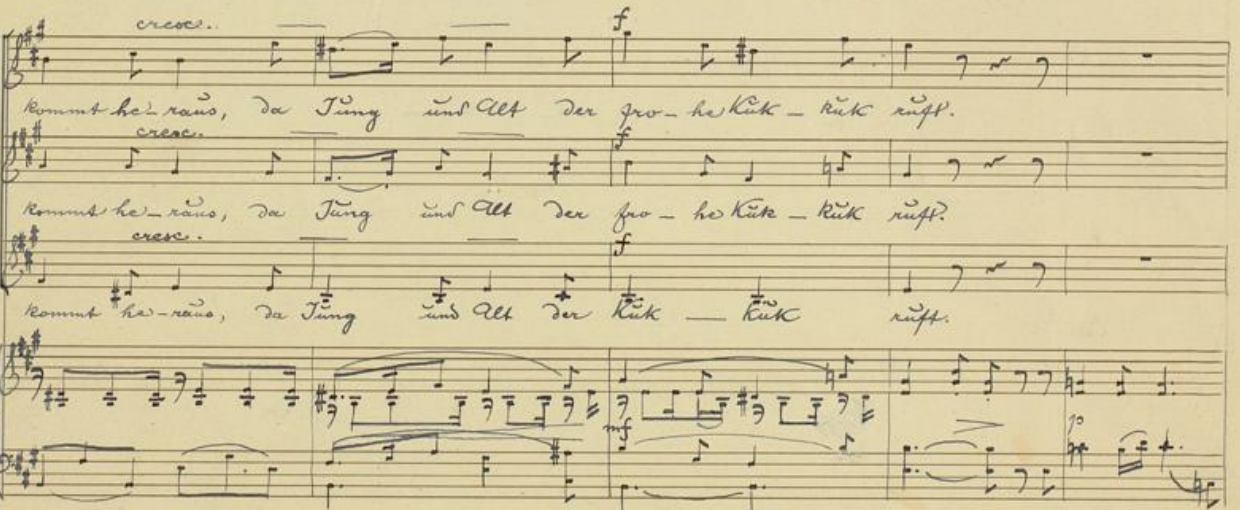 cresc.
f
kommt he-raus, da Jung und Alt der fro-he Kuk-kuk ruft.
cresc.
f
kommt he-raus, da Jung und Alt der fro-he Kuk-kuk ruft.
cresc.
f
kommt he-raus, da Jung und Alt der Kuk-kuk ruft.
mf
p